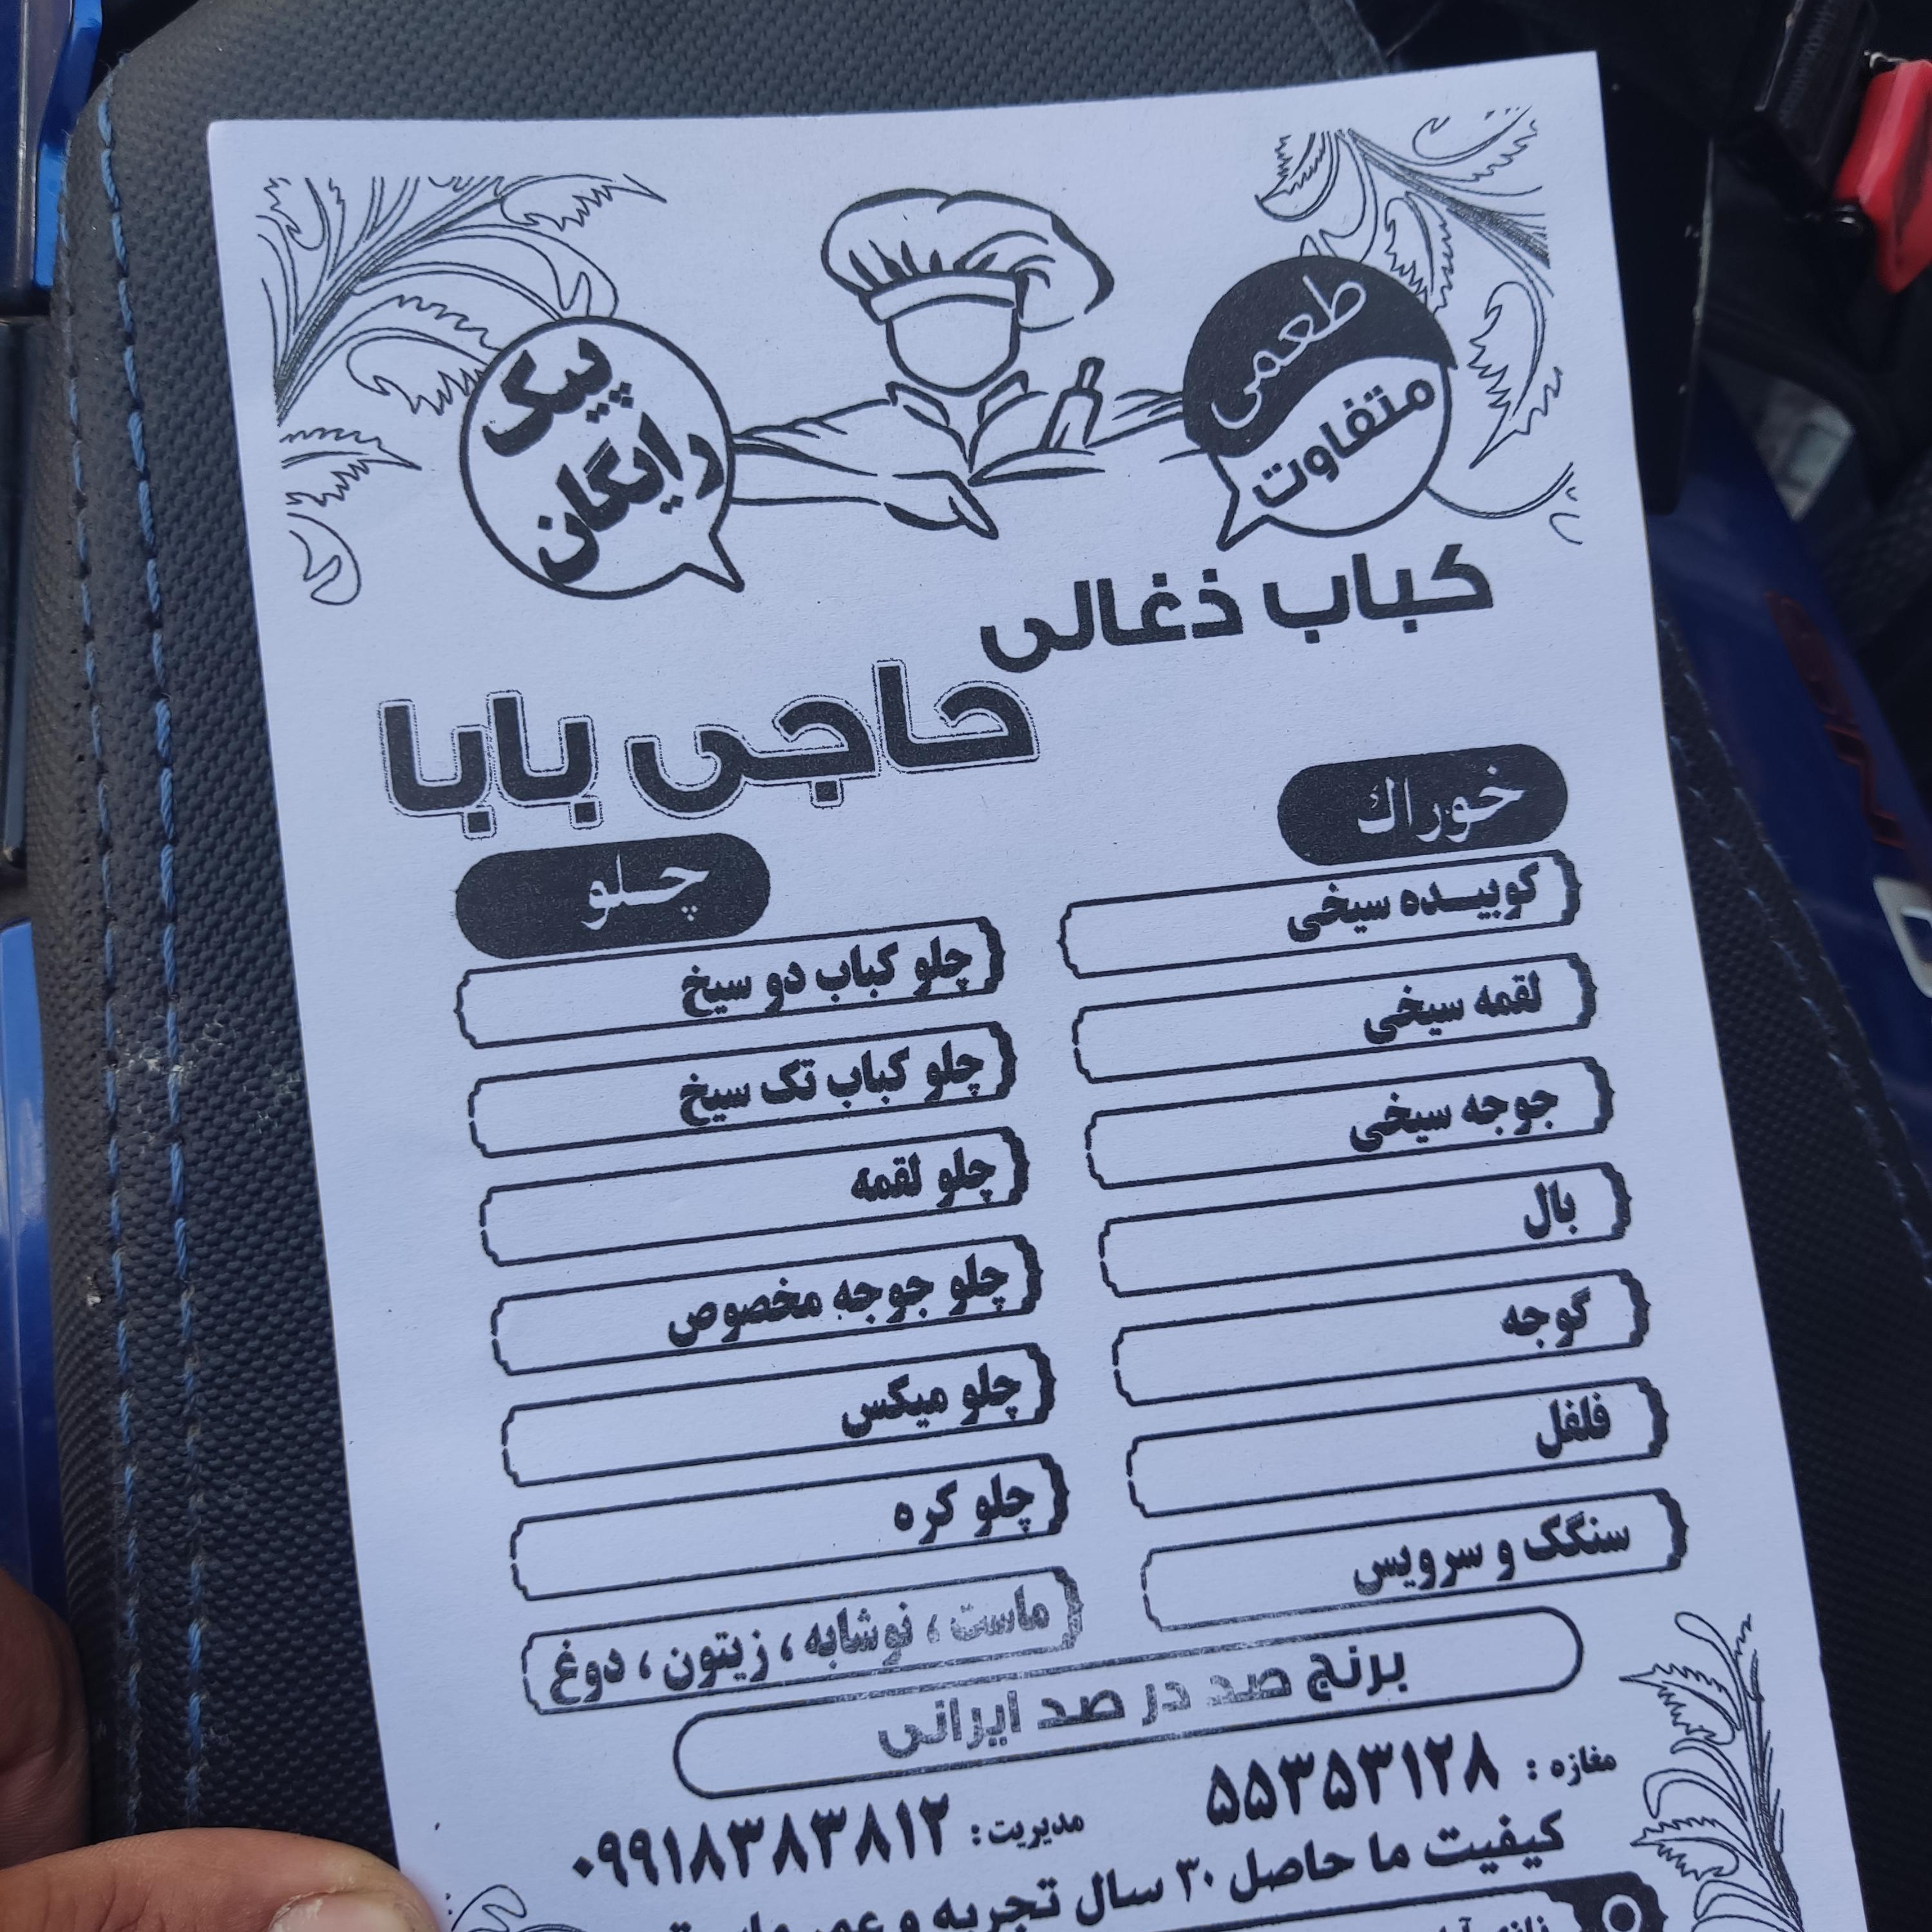 طعمی
متفاوت
پیک
رایگان
کباب ذغالی
حاجی بابا
خوراك
کوبیـــده سیخی
لقمه سیخی
جوجه سیخی
بال
گوجه
فلفل
سنگک و سرویس
چـلو
چلو کباب دو سیخ
چلو کباب تک سیخ
چلو لقمه
چلو جوجه مخصوص
چلو میکس
چلو کره
ماست ، نوشابه ، زیتون ، دوغ
برنج صد در صد ایرانی
مغازه : ۵۵۳۵۳۱۲۸
مدیریت : ۰۹۹۱۸۳۸۳۸۱۲
کیفیت ما حاصل ۳۰ سال تجربه و عمر ماست